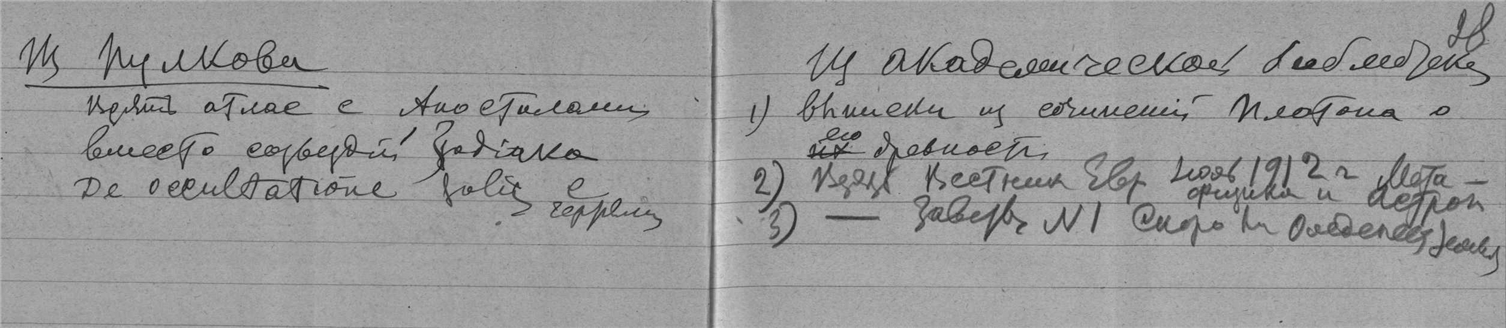 Из Пулкова
взять атлас с Апостолами
вместо созвездий Зодiака
De occultatione Solis e
28
Из академической библиотеки
1) выписки из сочинений Платона о
их его древности
2) Взять Вестник Евр 1912 г Мета-
физика и Астрон
3) — Заветы N 1 Скоро ли оледенеет земля